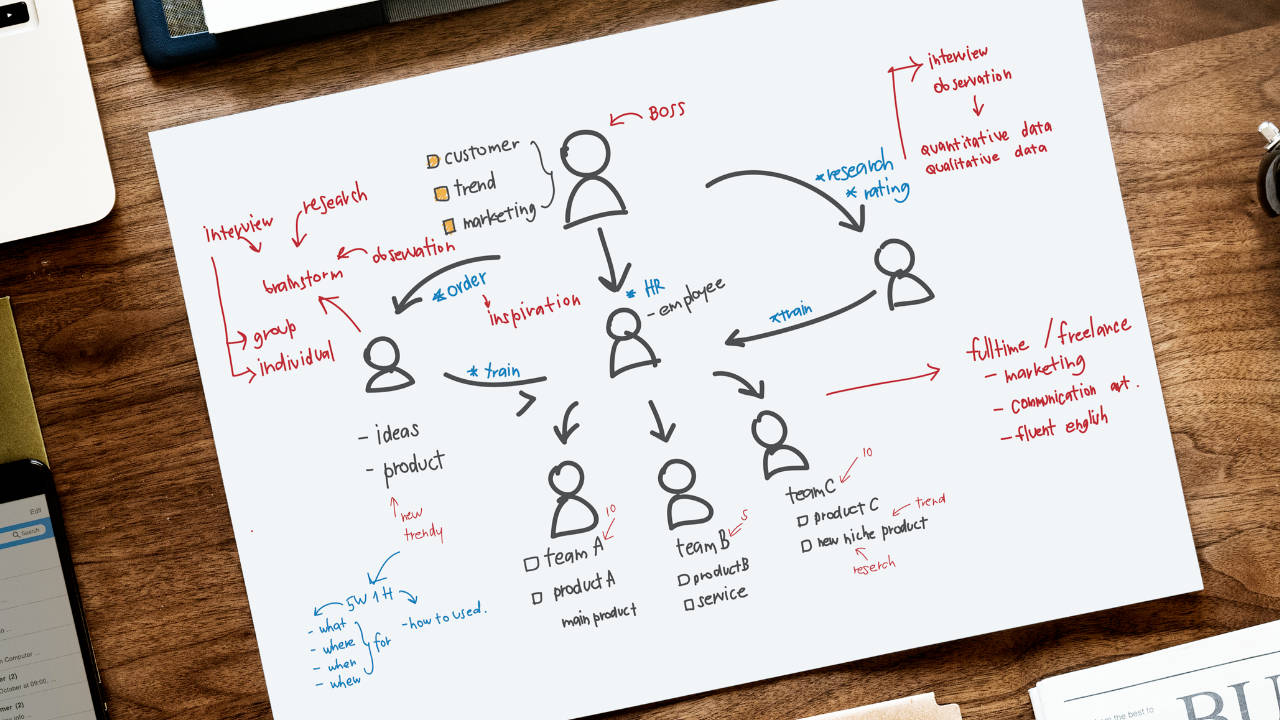 BOSS
customer
trend
marketing
interview
observation
quantitative data
qualitative data
*research
* rating
interview
research
observation
brainstorm
group
individual
*order
inspiration
* HR
- employee
*train
* train
- ideas
- product
new
trendy
5W 1H
- what
- where
- when
- whew
for
- how to used.
fulltime / freelance
- marketing
- communication
- fluent english
10
team A
product A
main product
5
team B
product B
service
10
team C
product C
new niche product
trend
reserch
Edit
Search
Computer ...
(2)
October at 09:00, ...
(2)
from the best to
BU